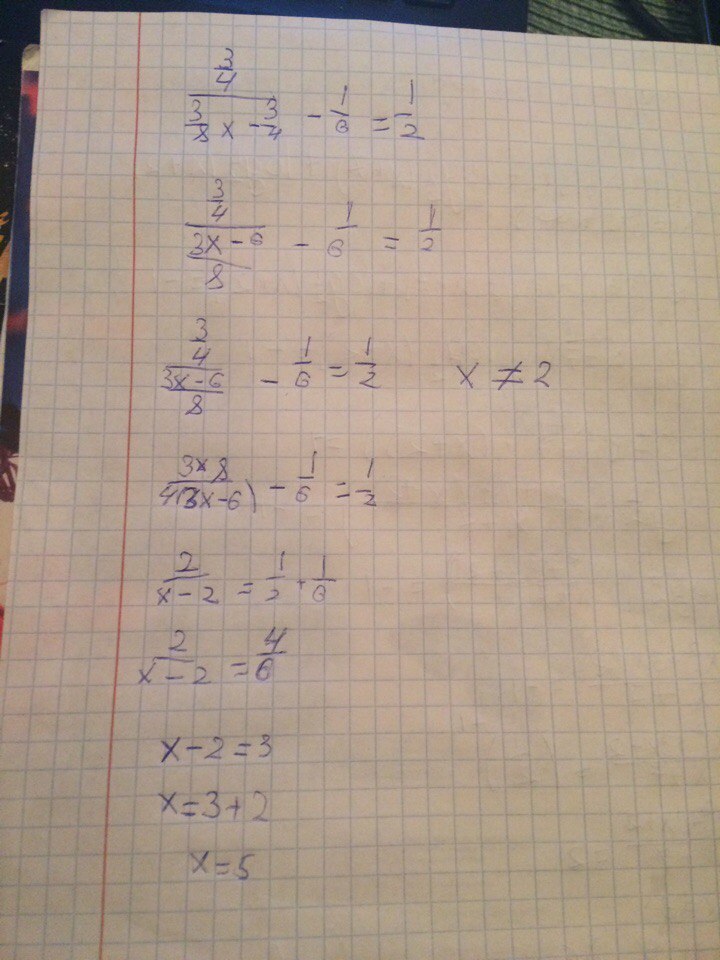 (3/4)/(3/8 x - 3/4) - 1/6 = 1/2
(3/4)/((3x-6)/8) - 1/6 = 1/2
(3/4)/((3x-6)/8) - 1/6 = 1/2 x ≠ 2
(3×8)/(4(3x-6)) - 1/6 = 1/2
2/(x-2) = 1/2 + 1/6
2/(x-2) = 4/6
x-2=3
x=3+2
x=5